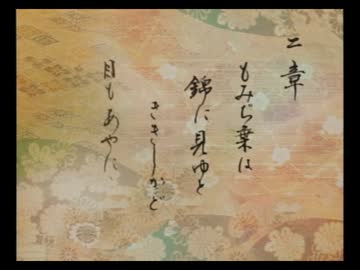 二章
もみぢ葉は
錦に見ゆと
ききしかど
目もあやに